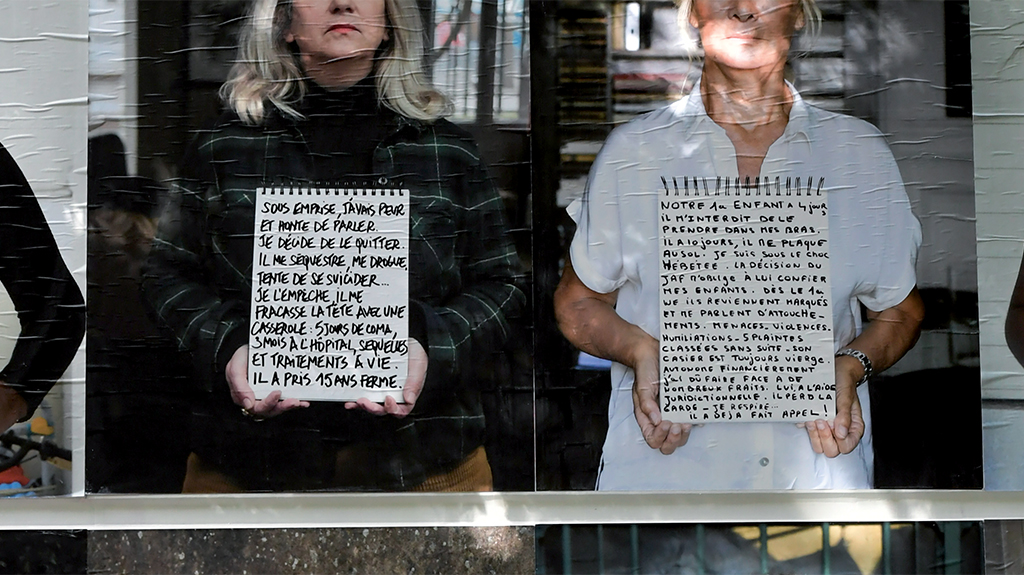 SOUS EMPRISE, J'AVAIS PEUR
ET HONTE DE PARLER.
JE DÉCIDE DE LE QUITTER.
IL ME SÉQUESTRE ME DROGUE,
TENTE DE SE SUICIDER...
JE L'EMPÊCHE, IL ME
FRACASSE LA TÊTE AVEC UNE
CASSEROLE : 5 JOURS DE COMA,
3 MOIS À L'HÔPITAL, SÉQUELLES
ET TRAITEMENTS À VIE.
IL A PRIS 15 ANS FERME.
NOTRE 1er ENFANT A 4 jours
IL M'INTERDIT DE LE
PRENDRE DANS MES BRAS.
IL A 10 JOURS, IL ME PLAQUE
AU SOL. JE SUIS SOUS LE CHOC
HÉBÉTÉE. LA DÉCISION DU
JAF M'OBLIGE A LUI CONFIER
MES ENFANTS. DÈS LE 1er
WE ILS REVIENNENT MARQUÉS
ET ME PARLENT D'ATTOUCHE-
MENTS. MENACES. VIOLENCES.
HUMILIATIONS - 5 PLAINTES
CLASSÉES SANS SUITE - SON
CASIER EST TOUJOURS VIERGE.
AUTONOME FINANCIÈREMENT
J'AI DÛ FAIRE FACE A DE
NOMBREUX FRAIS. LUI, A L'AIDE
JURIDICTIONNELLE. IL PERD LA
GARDE - JE RESPIRE...
IL A DÉJA FAIT APPEL !